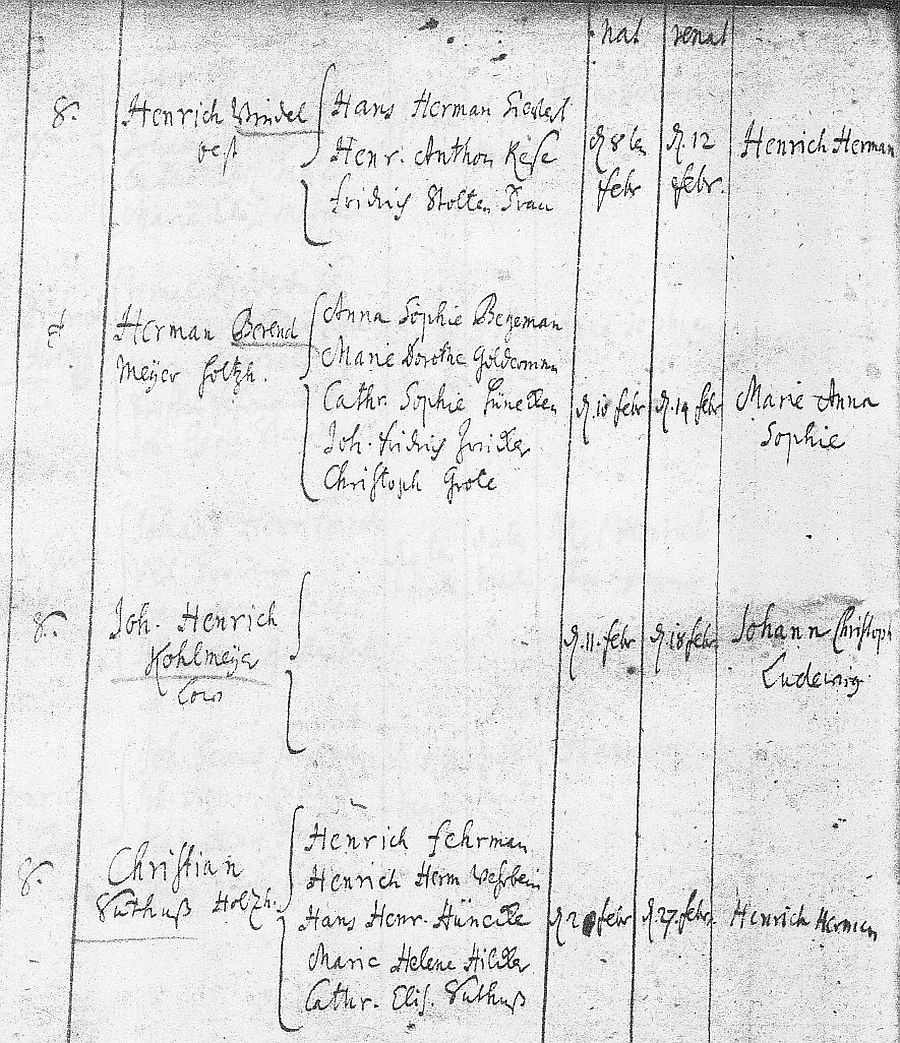 nat renat
8. Henrich Windel
Hans Herman
Henr. Anthon Kese
Fridrich Stolten Frau
d 8 ten
febr
d. 12
febr.
Henrich Herman
Herman Berend
Meyer Holtzh.
Anna Sophie Begeman
Marie Dorothe
Cathr. Sophie Hüneken
Joh. Fridrich
Christoph Grote
d. 10 febr d. 14 febr
Marie Anna
Sophie
8. Joh. Henrich
Kohlmeyer
d. 11. febr d. 18 febr
Johann Christoph
Ludewig
8. Christian
Suthuß Holtzh.
Henrich Fehrman
Henrich Herm Vehrbein
Hans Henr. Hüneke
Marie Helene Hilker
Cathr. Elis. Suthuß
febr d. 27. febr
Henrich Herman